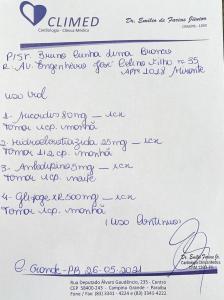 CLIMED
Cardiologia - Clínica Médica
Dr. Emilio de Farias Júnior
P/ST. Bruno Cunha Lima
R. Av. Engenheiro José Celino Filho nº 35
Apt 1018 Mirante
uso oral
1- Micardis 80mg — 1cx
Tomar 1cp. manhã
2- Hidroclorotiazida 25mg — 1cx
Tomar 1/2 cp. manhã
3- Anlodipino 5mg — 1cx
Tomar 1cp. noite
4- Glifage XR 500mg — 1cx
Tomar 1cp. manhã
(uso contínuo)
C. Grande-PB 26-05-2021
Rua Deputado Álvaro Gaudêncio, 235 - Centro
CEP 58400-243 - Campina Grande - Paraíba
Fone / Fax (83) 3341 - 4224 e (83) 3341-4222